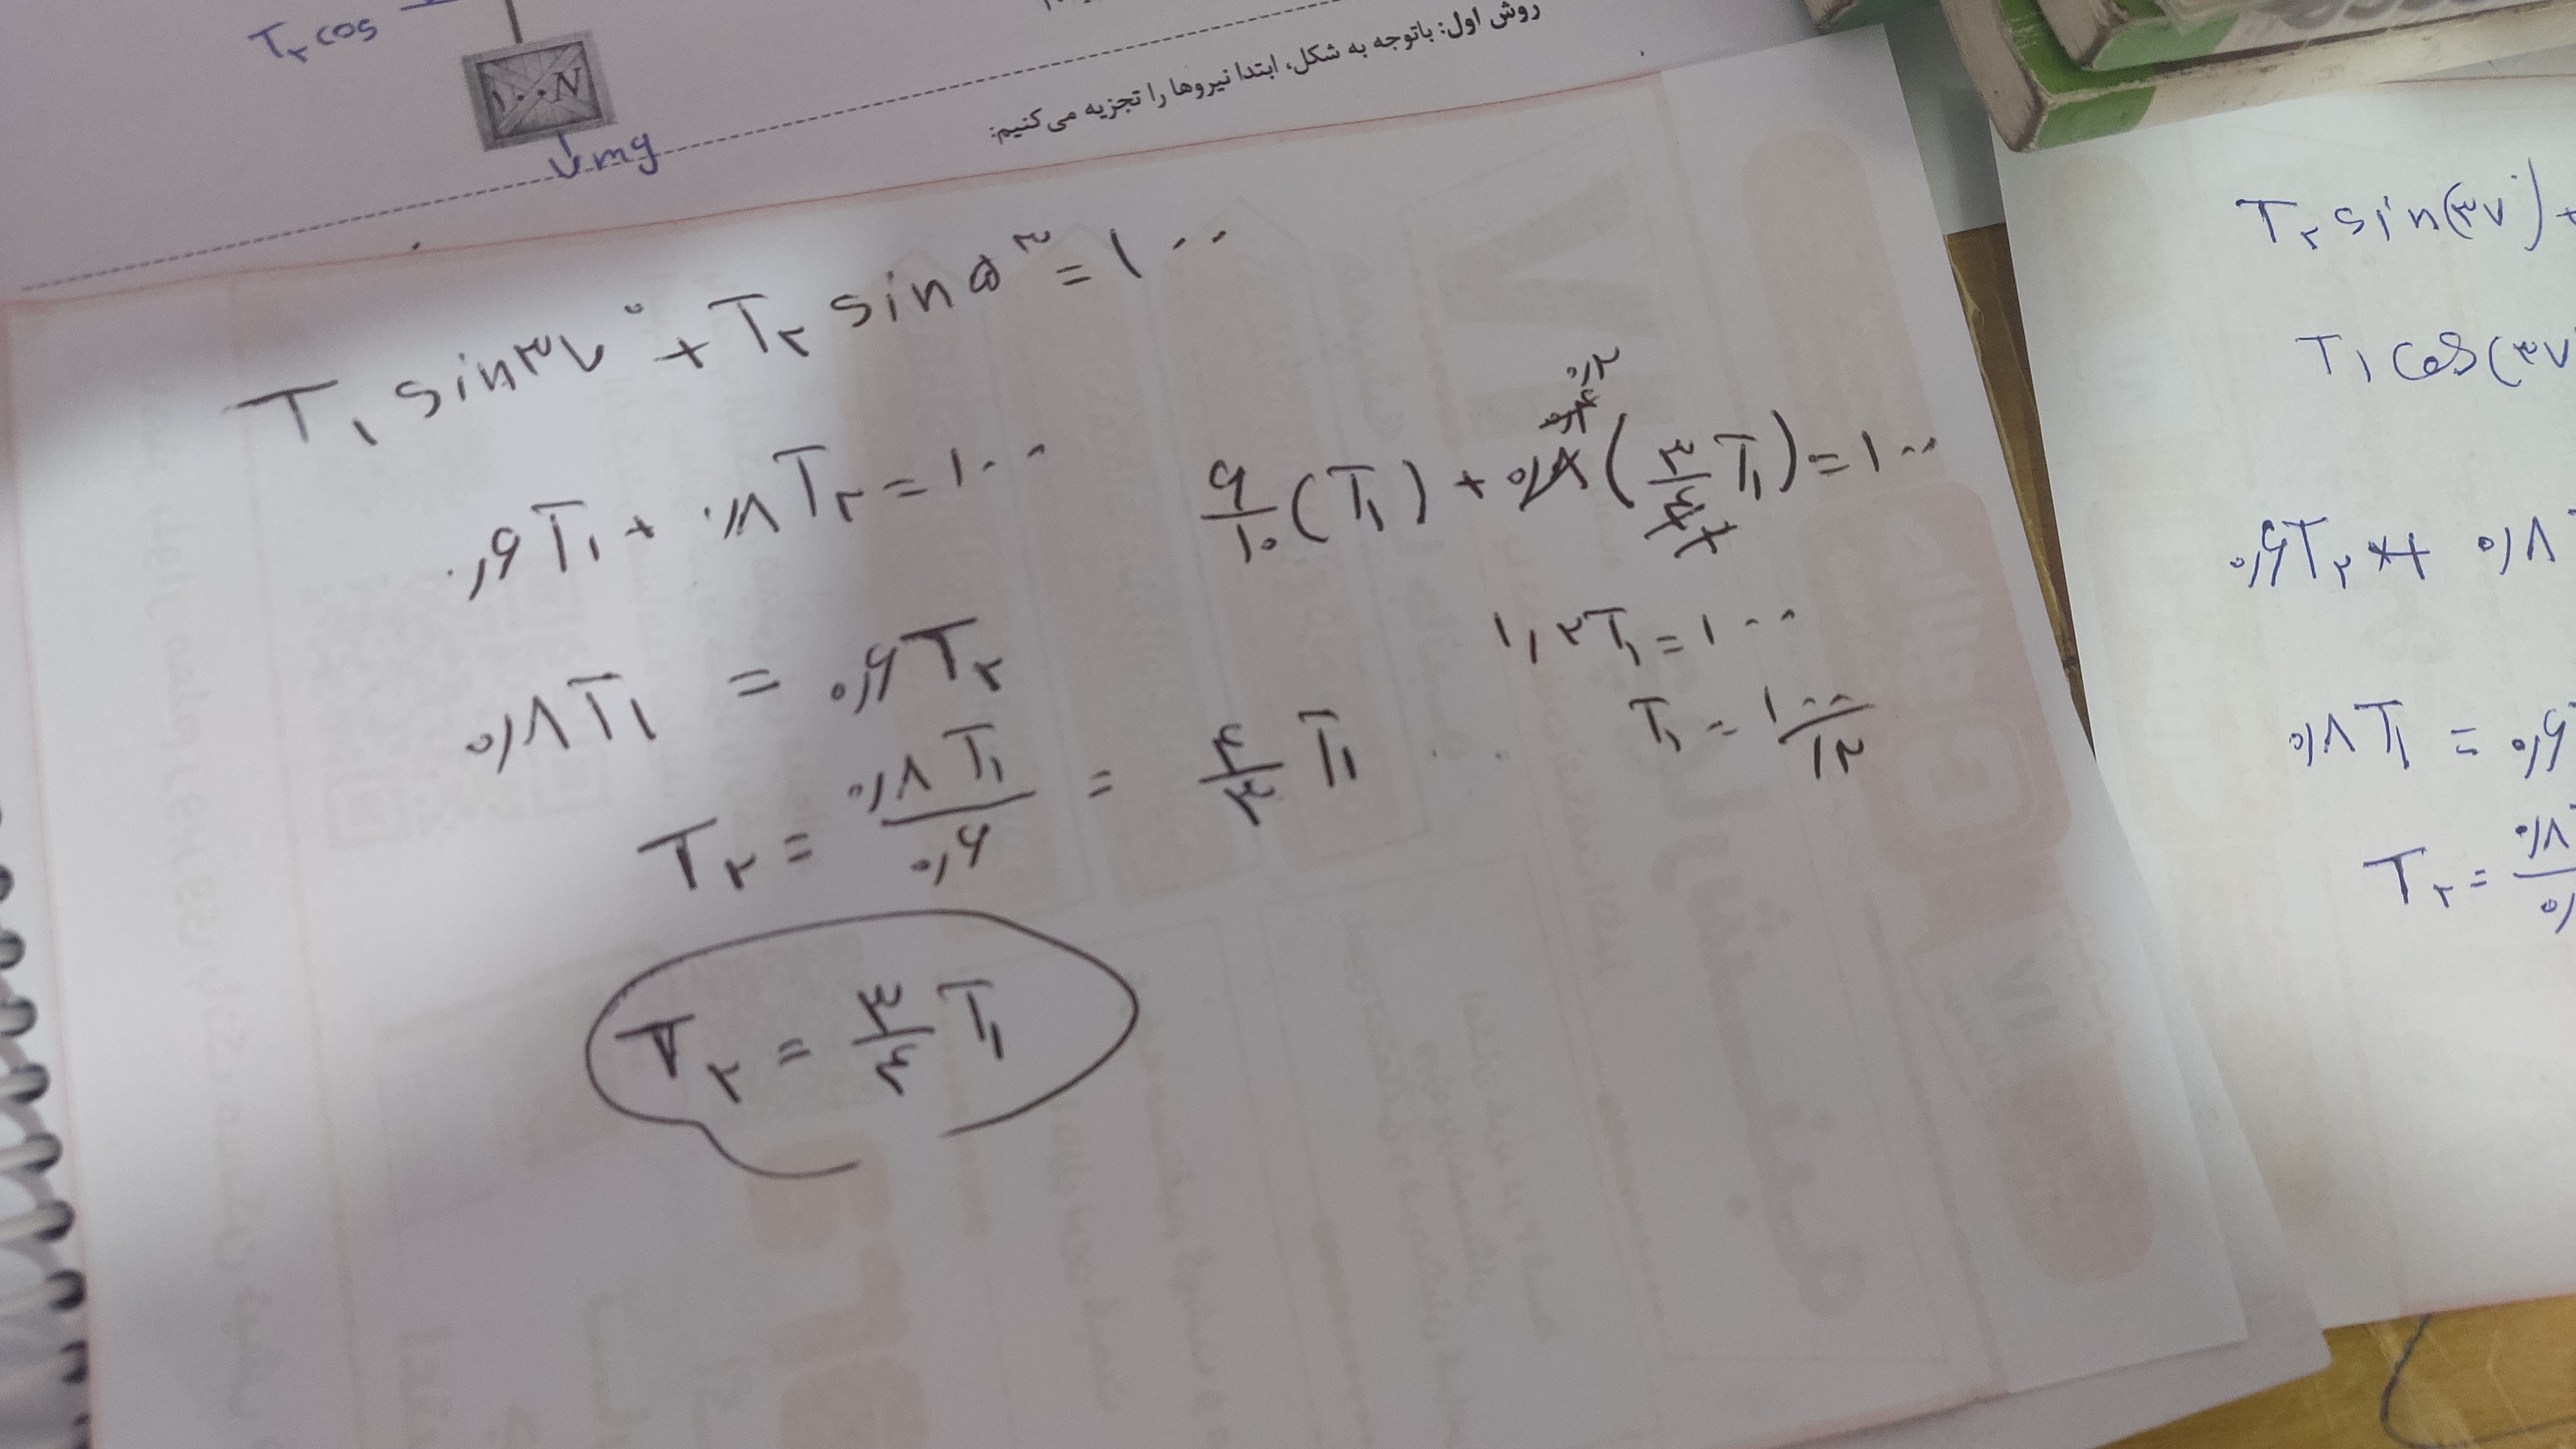 T۲ cos
۱۰۰N
mg
روش اول: باتوجه به شکل، ابتدا نیروها را تجزیه می‌کنیم:
T۱ sin۳۷° + T۲ sin۵۳ = ۱۰۰
۰,۶T۱ + ۰,۸T۲ = ۱۰۰
۶/۱۰ (T۱) + ۰,۸ (۳/۴ T۱) = ۱۰۰
۰,۲
۰,۸T۱ = ۰,۶T۲
۱,۲T۱ = ۱۰۰
T۲ = ۰,۸T۱/۰,۶ = ۴/۳ T۱
T۱ = ۱۰۰/۱۲
T۲ = ۳/۴ T۱
T۲ sin(۳۷°) +
T۱ cos(۳۷
۰,۶T۲ + ۰,۸
۰,۸T۱ = ۰,۶
T۲ = ۰,۸